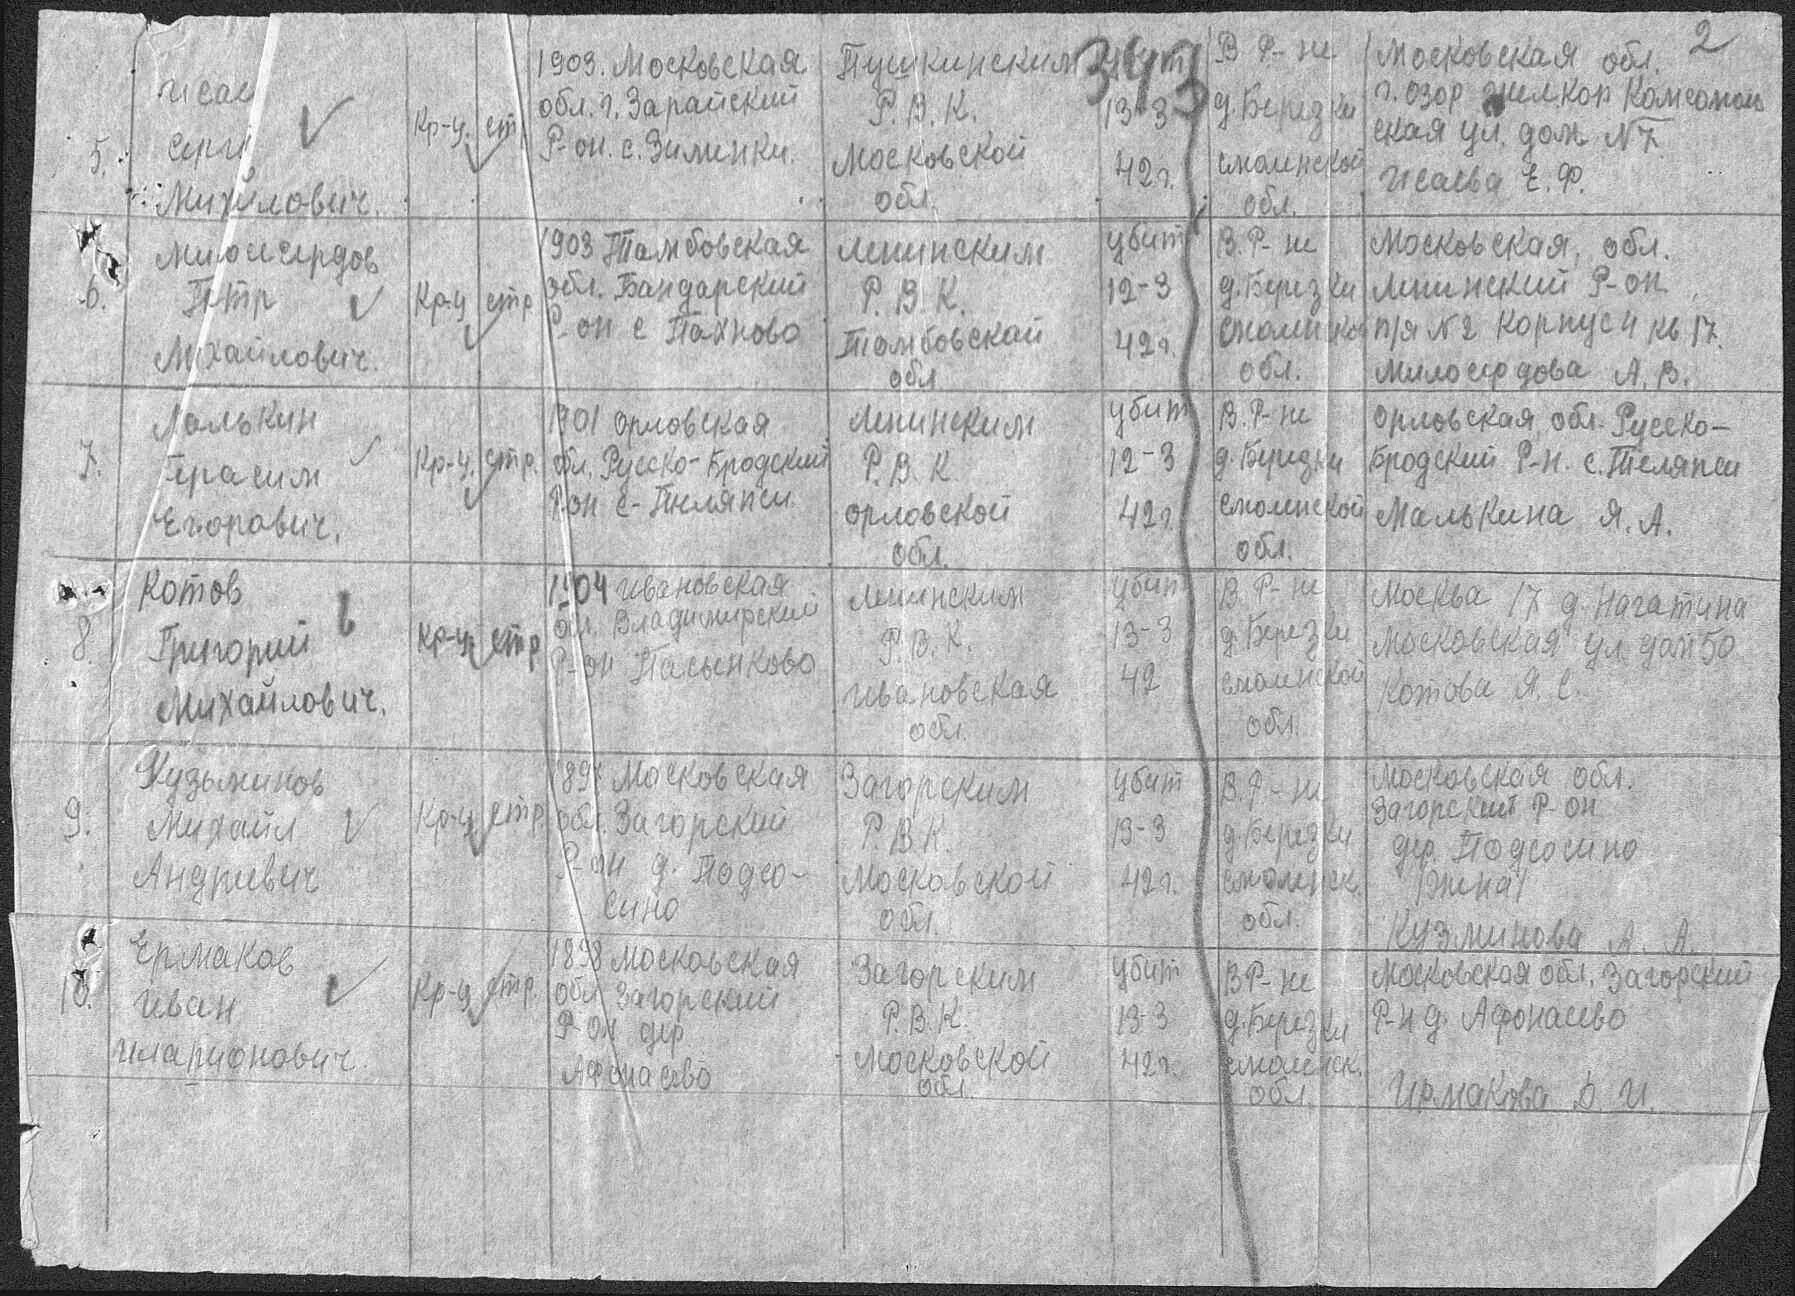 2
343
5.
Михайлович.
Кр-ц. стр.
1903. Московская
обл. г. Зарайский
Р-он. с. Зименки.
Пушкинским
Р. В. К.
Московской
обл.
13-3
42 г.
В. Р-не
д. Березки
смоленской
обл.
Московская обл.
ская ул. дом №7.
Исаева Е. Ф.
6.
Милосердов
Петр
Михайлович.
Кр-ц стр
1903 Тамбовская
обл. Бандарский
Р-он с Пахново
Ленинским
Р. В. К.
Тамбовской
обл.
убит
12-3
42 г.
В. Р-не
д. Березки
обл.
Московская, обл.
Ленинский Р-он
п/я №2 Корпус 4 кв 17.
Милосердова А. В.
7.
Малькин
Герасим
Егорович.
Кр-ц. стр.
1901 Орловская
обл. Русско-Бродский
Р-он с-Теляпси
Ленинским
Р. В. К.
Орловской
обл.
убит
12-3
42 г.
В. Р-не
д. Березки
смоленской
обл.
Орловская, обл. Русско-
Бродский Р-н. с. Теляпси
Малькина Я. А.
8.
Котов
Григорий
Михайлович.
Кр-ц стр
1904 Ивановская
обл. Владимирский
Р-он Пасынково
Ленинским
Р. В. К.
Ивановская
обл.
убит
13-3
42
В. Р-не
д. Березки
смоленской
обл.
Москва 17 д. Нагатина
Московская ул дом 50
Котова Я. С.
9.
Кузьминов
Михайл
Андревич
Кр-ц стр
Московская
обл. Загорский
Р-он д. Подсо-
сино
Загорским
Р. В. К.
Московской
обл.
убит
13-3
42 г.
В. Р-не
д. Березки
смоленск.
обл.
Московская обл.
Загорский Р-он
дер. Подсосино
Кузминова А. А.
10.
Ермаков
Иван
Иларионович.
Кр-ц стр.
1898 Московская
обл Загорский
Р-он дер
Афонасево
Загорским
Р. В. К.
Московской
обл.
убит
13-3
42 г.
В Р-не
д. Березки
смоленск.
обл.
Московская обл. Загорский
Р-н д. Афонасево
Ирмакова О. И.